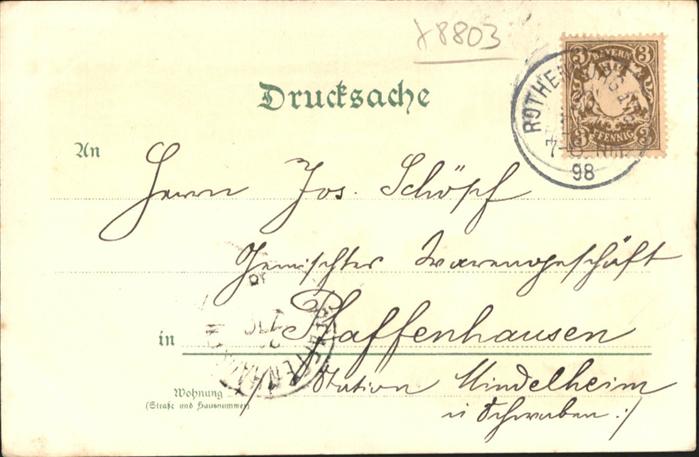 x8803
Drucksache
BAYERN
3 3
PFENNIG
3 3
ROTHEN
7-
98
An
Herrn Jos. Schöpf
Gemischtes Warengeschäft
in Pfaffenhausen
Wohnung
(Straße und Hausnummer)
Station Mindelheim
i/ Schwaben :/